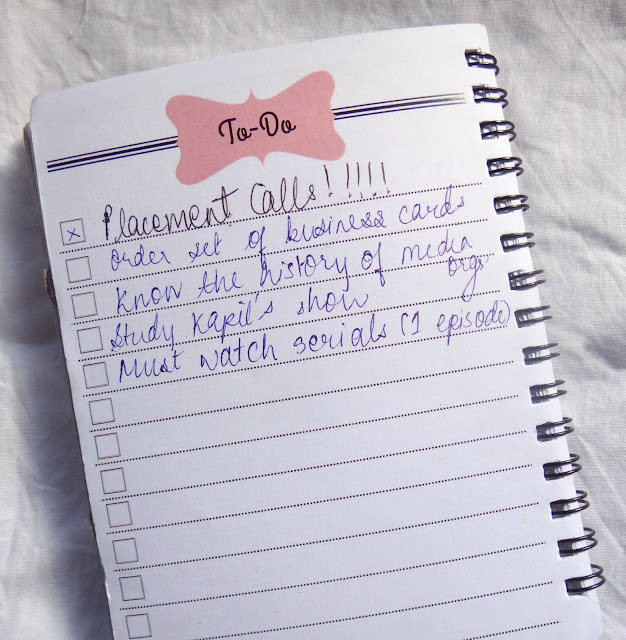 To-Do
x Placement Calls! !!!!
Order set of business cards
Know the history of media
orgs
Study Kapil's show
Must watch serials (1 episode)